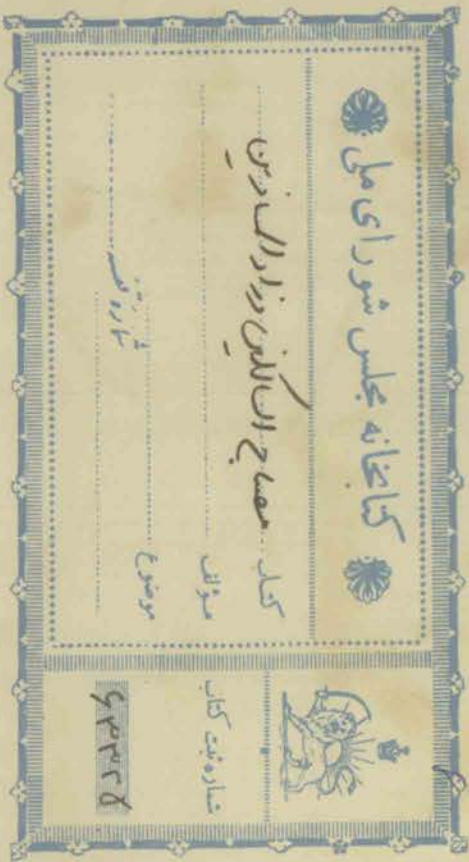 کتابخانه مجلس شورای ملی
کتاب مصباح السالکین و زاد المسافرین
مؤلف
موضوع
شماره قفسه
شماره ثبت کتاب